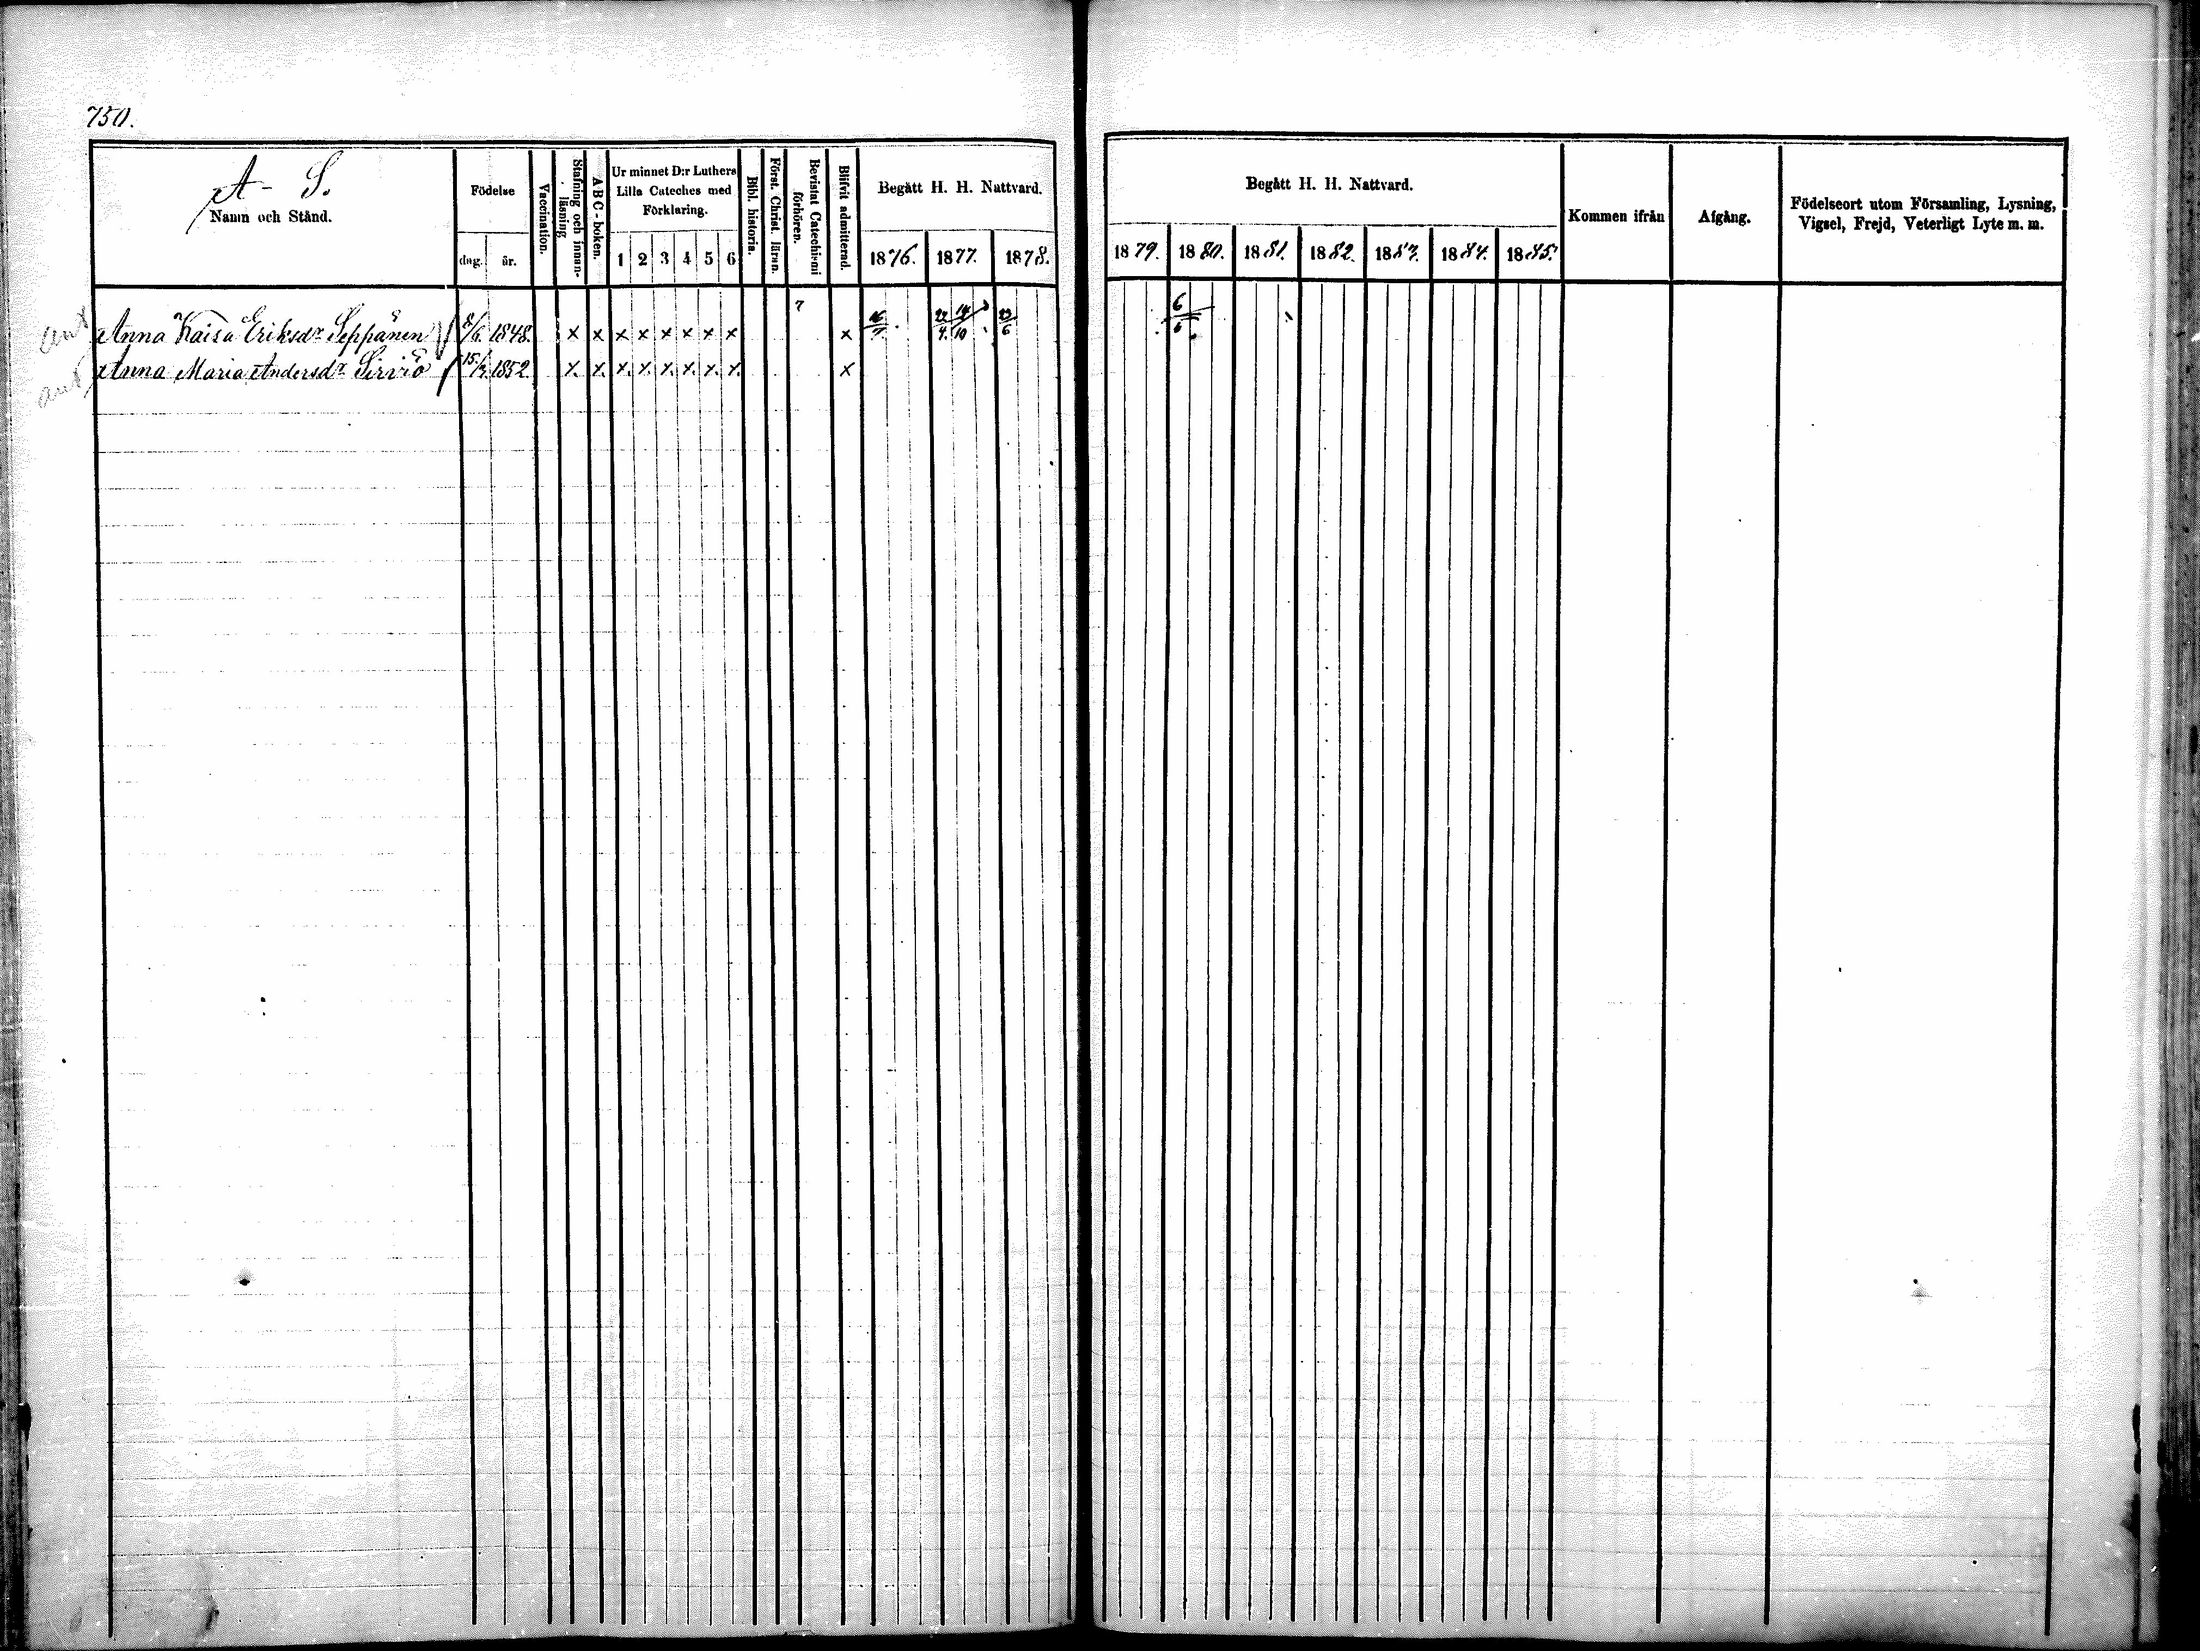 750.
A - S.
Namn och Stånd.
Födelse
dag. år.
Vaccination.
Stafning och innan-läsning
ABC-boken.
Ur minnet D:r Luthers Lilla Cateches med Förklaring.
1 2 3 4 5 6
Bibl. historia.
Först. Christ. läran.
Bevistat Catechismi förhören.
Blifvit admitterad.
Begått H. H. Nattvard.
1876. 1877. 1878.
Begått H. H. Nattvard.
1879. 1880. 1881. 1882. 1883. 1884. 1885.
Kommen ifrån
Afgång.
Födelseort utom Församling, Lysning, Vigsel, Frejd, Veterligt Lyte m. m.
Anna Kaisa Eriksdr Seppänen 8/6. 1848. x x x x x x x x x 22/4. 14/10 23/6 6/6
Anna Maria Andersdr Sirviö 1852. x x x x x x x x x